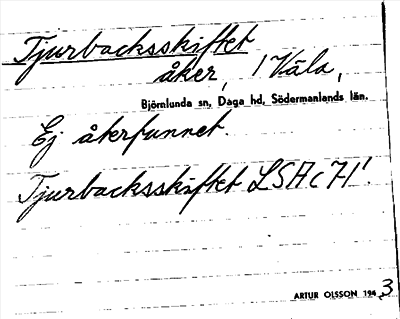 Tjurbacksskiftet
åker, 1 Väla,
Björnlunda sn, Daga hd, Södermanlands län.
Ej återfunnet.
Tjurbacksskiftet LSA c 71¹.
ARTUR OLSSON 1943